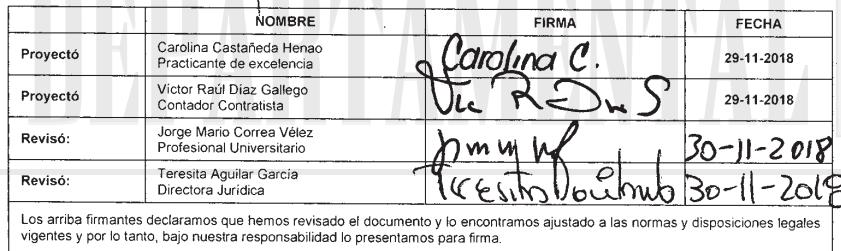 DEPARTAMENTAL
NOMBRE FIRMA FECHA
Proyectó Carolina Castañeda Henao
Practicante de excelencia Carolina C. 29-11-2018
Proyectó Victor Raúl Díaz Gallego
Contador Contratista 29-11-2018
Revisó: Jorge Mario Correa Vélez
Profesional Universitario 30-11-2018
Revisó: Teresita Aguilar García
Directora Jurídica Teresita 30-11-2018
Los arriba firmantes declaramos que hemos revisado el documento y lo encontramos ajustado a las normas y disposiciones legales
vigentes y por lo tanto, bajo nuestra responsabilidad lo presentamos para firma.